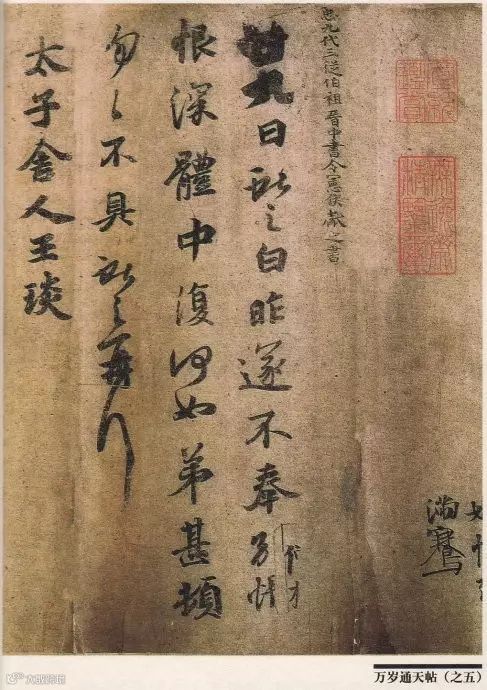 臣九代三從伯祖晉中書令憲侯獻之書
廿九日獻之白昨遂不奉別悵
恨深體中復何如弟甚頓
匆〻不具獻之再拜
太子舍人王琰
万岁通天帖（之五）